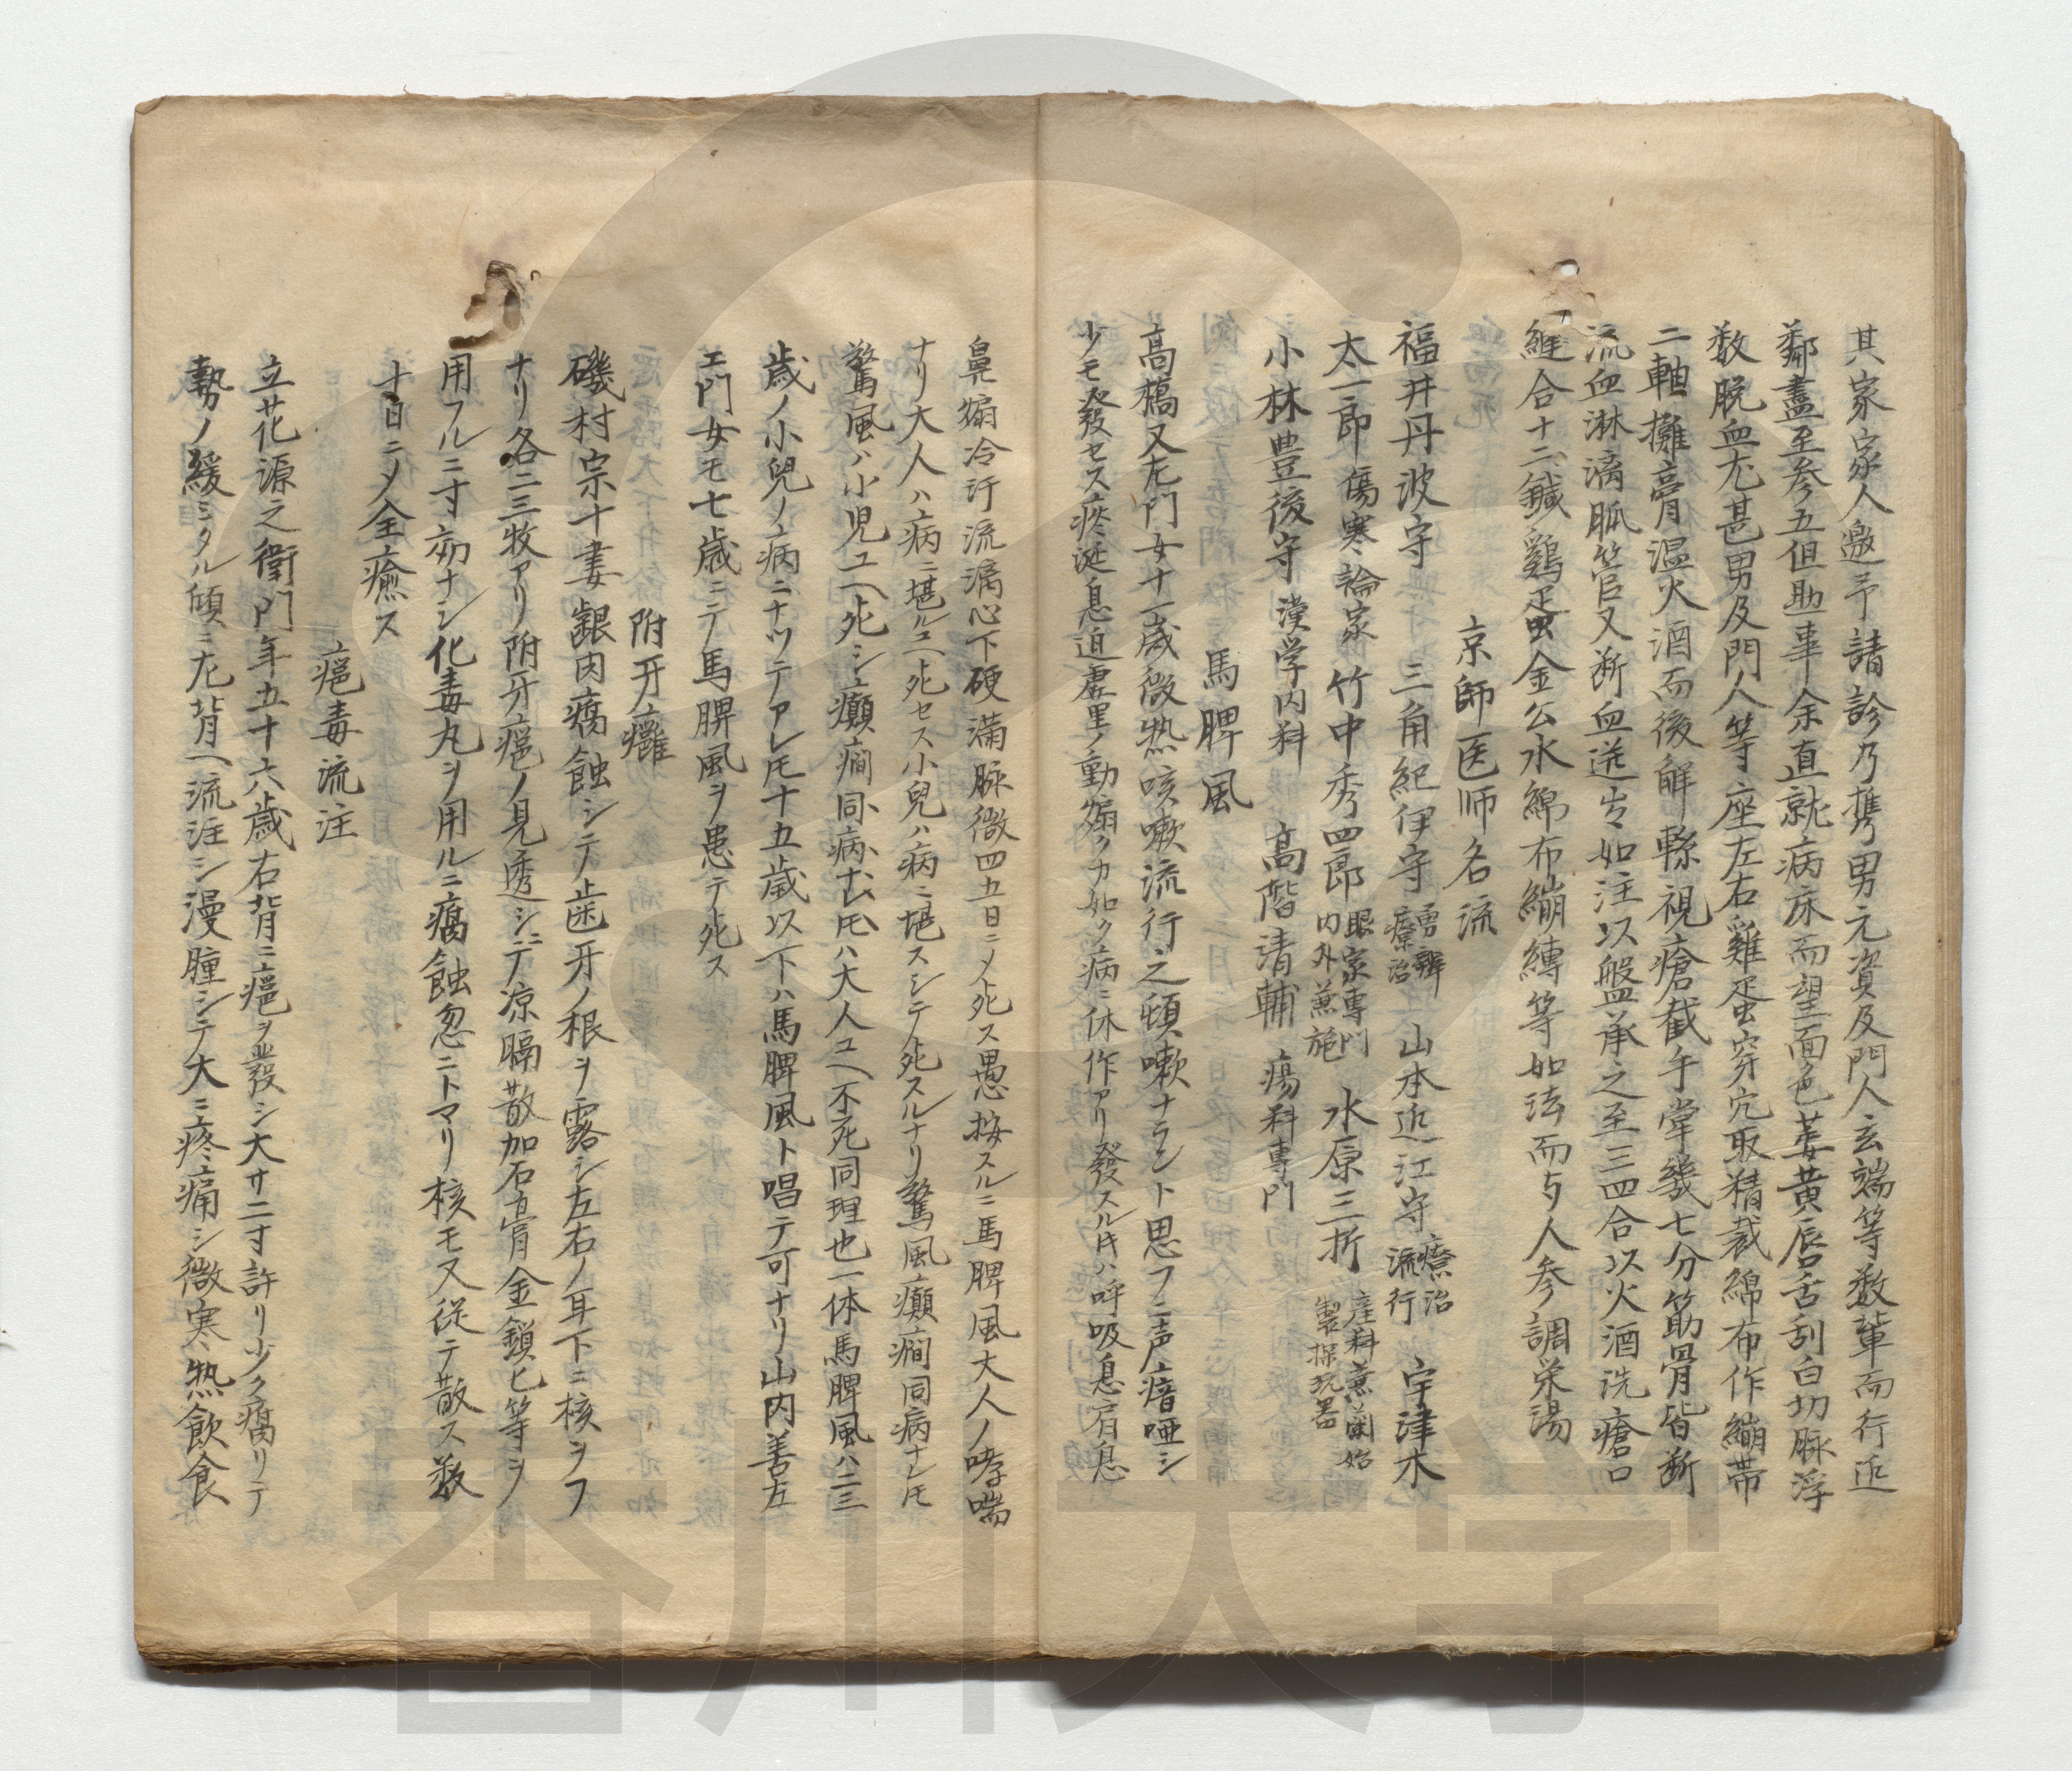 其家家人邀予請診乃携男元資及門人玄端等数輩而行近
鄰盡至参五但助事余直就病床而望面色萎黄唇舌刮白切脉浮
数脱血尤甚男及門人等座左右雞蛋穿穴取精裁綿布作繃帯
二軸攤膏温火酒而後解縣視瘡截午掌幾七分筋骨皆断
流血淋漓脈管又断血迸出如注以盤承之至三四合以火酒洗瘡口
縫合十二鍼鷄蛋金公水綿布繃縛等如法而与人参調栄湯
京師医师名流
福井丹波守 三角紀伊守 療治 山本近江守 療治流行 宇津木
太一郎 傷寒論家 竹中秀四郎 眼家専門内外兼施 水原三折 産科兼蘭始製探玩器
小林豊後守 漢学内科 高階清輔 瘍科専門
馬脾風
高橋又左門女十一歳微熱咳嗽流行之頓嗽ナラント思フニ声瘖唖シ
少モ發セス痰涎息迫虚里ノ動搦クカ如ク病ニ休作アリ發スル時ハ呼吸息肩息
鼻搧冷汗流漓心下硬満脉微四五日ニメ死ス愚按スルニ馬脾風大人ノ哮喘
ナリ大人ハ病ニ堪ルユヘ死セス小兒ハ病ニ堪スシテ死スルナリ驚風癲癇同病ナレ𪜈
驚風ハ小児ユヘ死シ癲癇同病ナレ𪜈ハ大人ユヘ不死同理也一体馬脾風ハ二三
歳ノ小兒ノ病ニナツテアレ𪜈十五歳以下ハ馬脾風ト唱テ可ナリ山内善左
エ門女モ七歳ニテ馬脾風ヲ患テ死ス
附牙癰
磯村宗十妻齦肉腐蝕シテ歯牙ノ根ヲ露シ左右ノ耳下ニ核ヲフ
ナリ各二三牧アリ附牙瘟ノ見透シニテ凉膈散加石膏金鎖匕等ヲ
用フルニ寸効ナシ化毒丸ヲ用ルニ腐蝕忽ニトマリ核モ又従テ散ス数
十日ニメ全癒ス
瘟毒流注
立花源之衛門年五十六歳右背ニ瘟ヲ發シ大サ二寸許リ少ク腐リテ
勢ノ緩ミタル傾ニ左背ヘ流注シ漫腫シテ大ニ疼痛シ微寒熱飲食